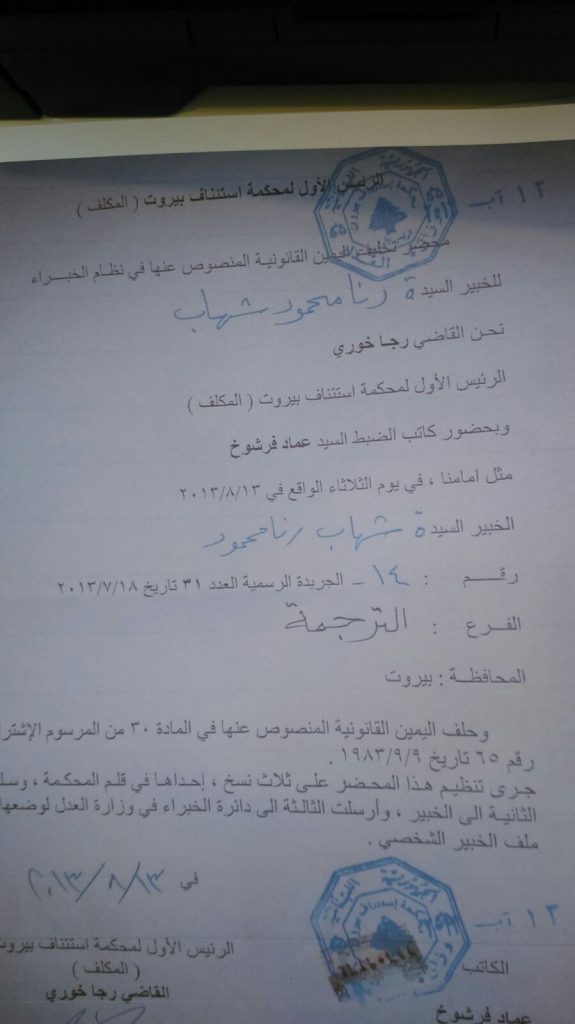 الرئيس الأول لمحكمة استئناف بيروت ( المكلف )
١٣ آب
محضر تحليف اليمين القانونية المنصوص عنها في نظام الخبـــراء
للخبير السيدة رنا محمود شهاب
نحن القاضي رجا خوري
الرئيس الأول لمحكمة استئناف بيروت ( المكلف )
وبحضور كاتب الضبط السيد عماد فرشوخ
مثل امامنا ، في يوم الثلاثاء الواقع في ٢٠١٣/٨/١٣
الخبير السيدة شهاب رنا محمود
رقـــــم : ١٤ - الجريدة الرسمية العدد ٣١ تاريخ ٢٠١٣/٧/١٨
الفـــرع : الترجمة
المحافظـــة : بيروت
وحلف اليمين القانونية المنصوص عنها في المادة ٣٠ من المرسوم الإشترا
رقم ٦٥ تاريخ ١٩٨٣/٩/٩ .
جرى تنظيم هذا المحضر على ثلاث نسخ ، إحداها في قلم المحكمة ، وسل
الثانية الى الخبير ، وأرسلت الثالثة الى دائرة الخبراء في وزارة العدل لوضعها
ملف الخبير الشخصي .
في ٢٠١٣/٨/١٣
١٣ آب
الكاتب
عماد فرشوخ
الرئيس الأول لمحكمة استئناف بيروت
( المكلف )
القاضي رجا خوري